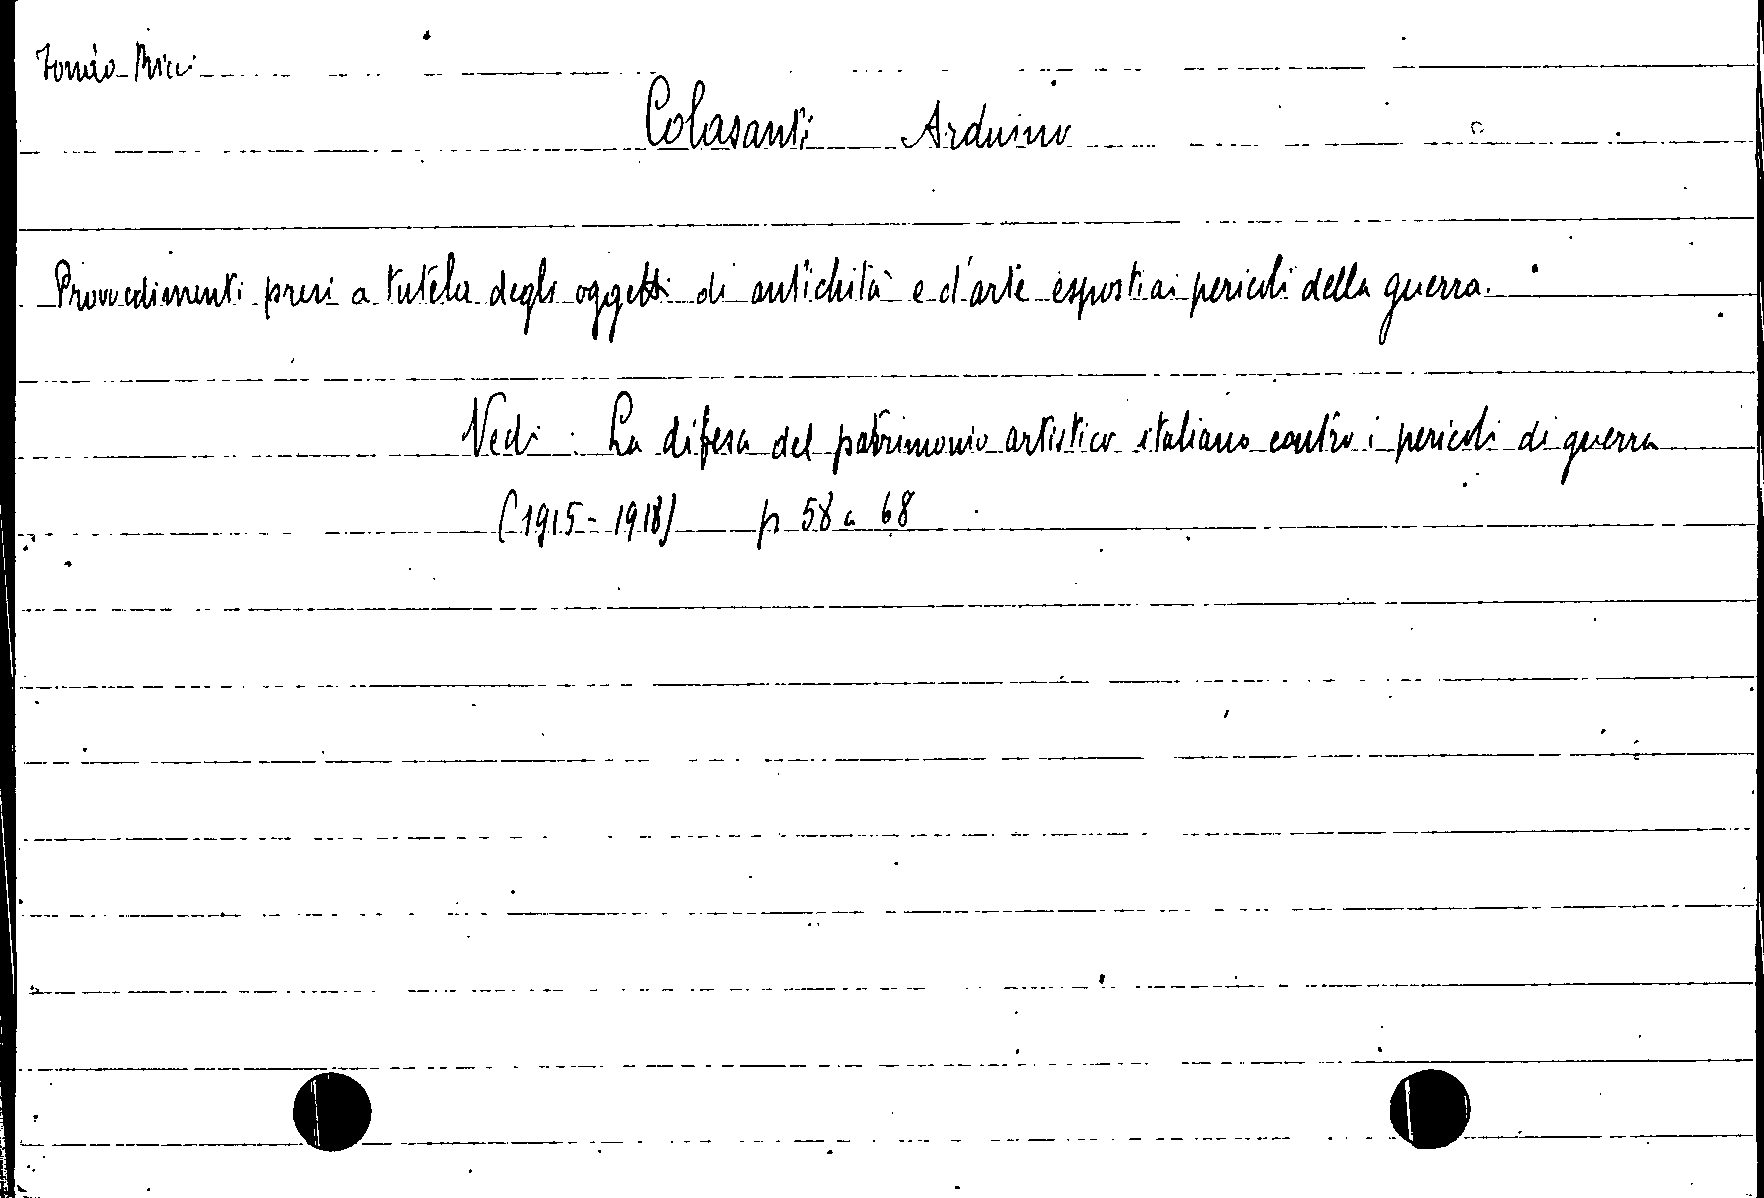 Fondo Ricci
Colasanti Arduino
Provvedimenti presi a tutela degli oggetti di antichità e d'arte esposti ai pericoli della guerra.
Vedi: La difesa del patrimonio artistico italiano contro i pericoli di guerra
(1915-1918) p 58 a 68